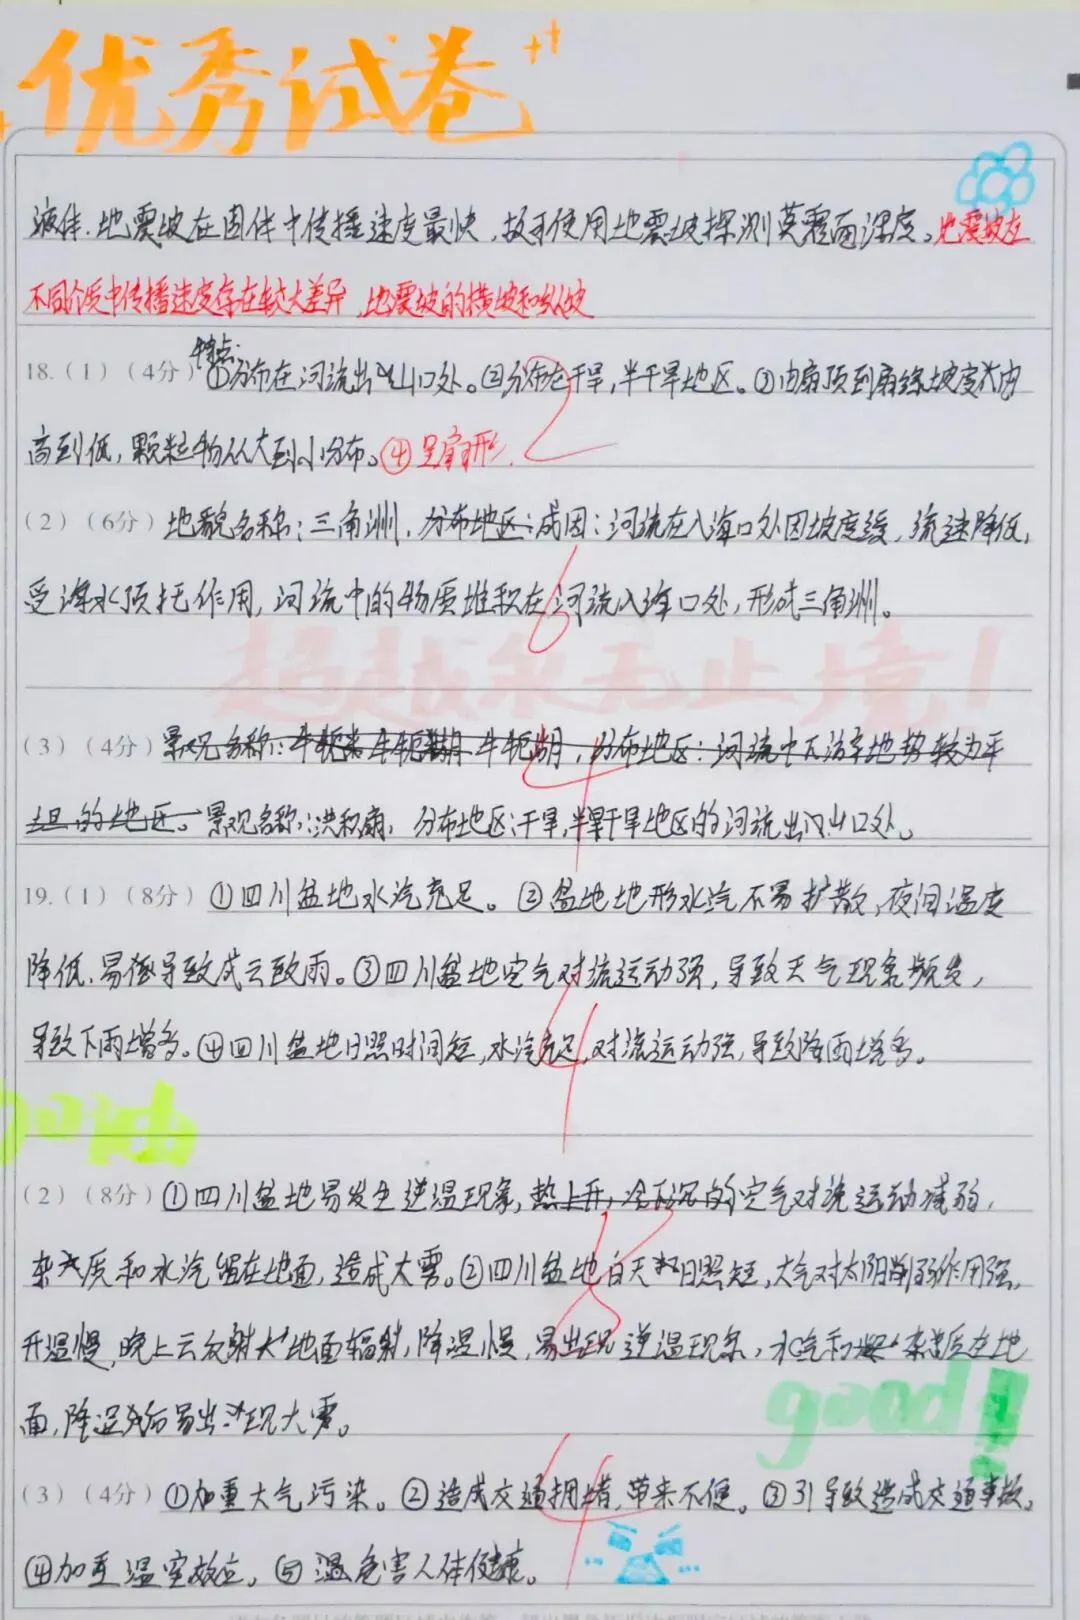 优秀试卷
液体.地震波在固体中传播速度最快,故可使用地震波探测莫霍面深度。地震波在
不同介质中传播速度存在较大差异,地震波的横波和纵波
特点:
18.(1)(4分)①分布在河流出山口处。②分布在干旱,半干旱地区。③由扇顶到扇缘坡度内
高到低,颗粒物从大到小分布。④呈扇形.
2
(2)(6分)地貌名称:三角洲.分布地区:成因:河流在入海口处因坡度缓,流速降低,
受海水顶托作用,河流中的物质堆积在河流入海口处,形成三角洲。
6
超越永无止境!
(3)(4分)景观名称:牛轭湖,分布地区:河流中下游地势较为平
坦的地区。景观名称:洪积扇,分布地区:干旱,半干旱地区的河流出山口处。
4
19.(1)(8分)①四川盆地水汽充足。②盆地地形水汽不易扩散,夜间温度
降低,易导致成云致雨。③四川盆地空气对流运动强,导致天气现象频发,
导致下雨增多。④四川盆地日照时间短,水汽充足,对流运动强,导致降雨增多。
4
加油
(2)(8分)①四川盆地易发生逆温现象,热上升,冷下沉的空气对流运动减弱,
杂质和水汽留在地面,造成大雾。②四川盆地白天日照短,大气对太阳削弱作用强,
升温慢,晚上云反射大地面辐射,降温慢,易出现逆温现象,水汽和杂质在地
面,降温后易出现大雾。
8
good!
(3)(4分)①加重大气污染。②造成交通拥堵,带来不便。③引导致造成交通事故。
④加重温室效应。⑤温危害人体健康。
4